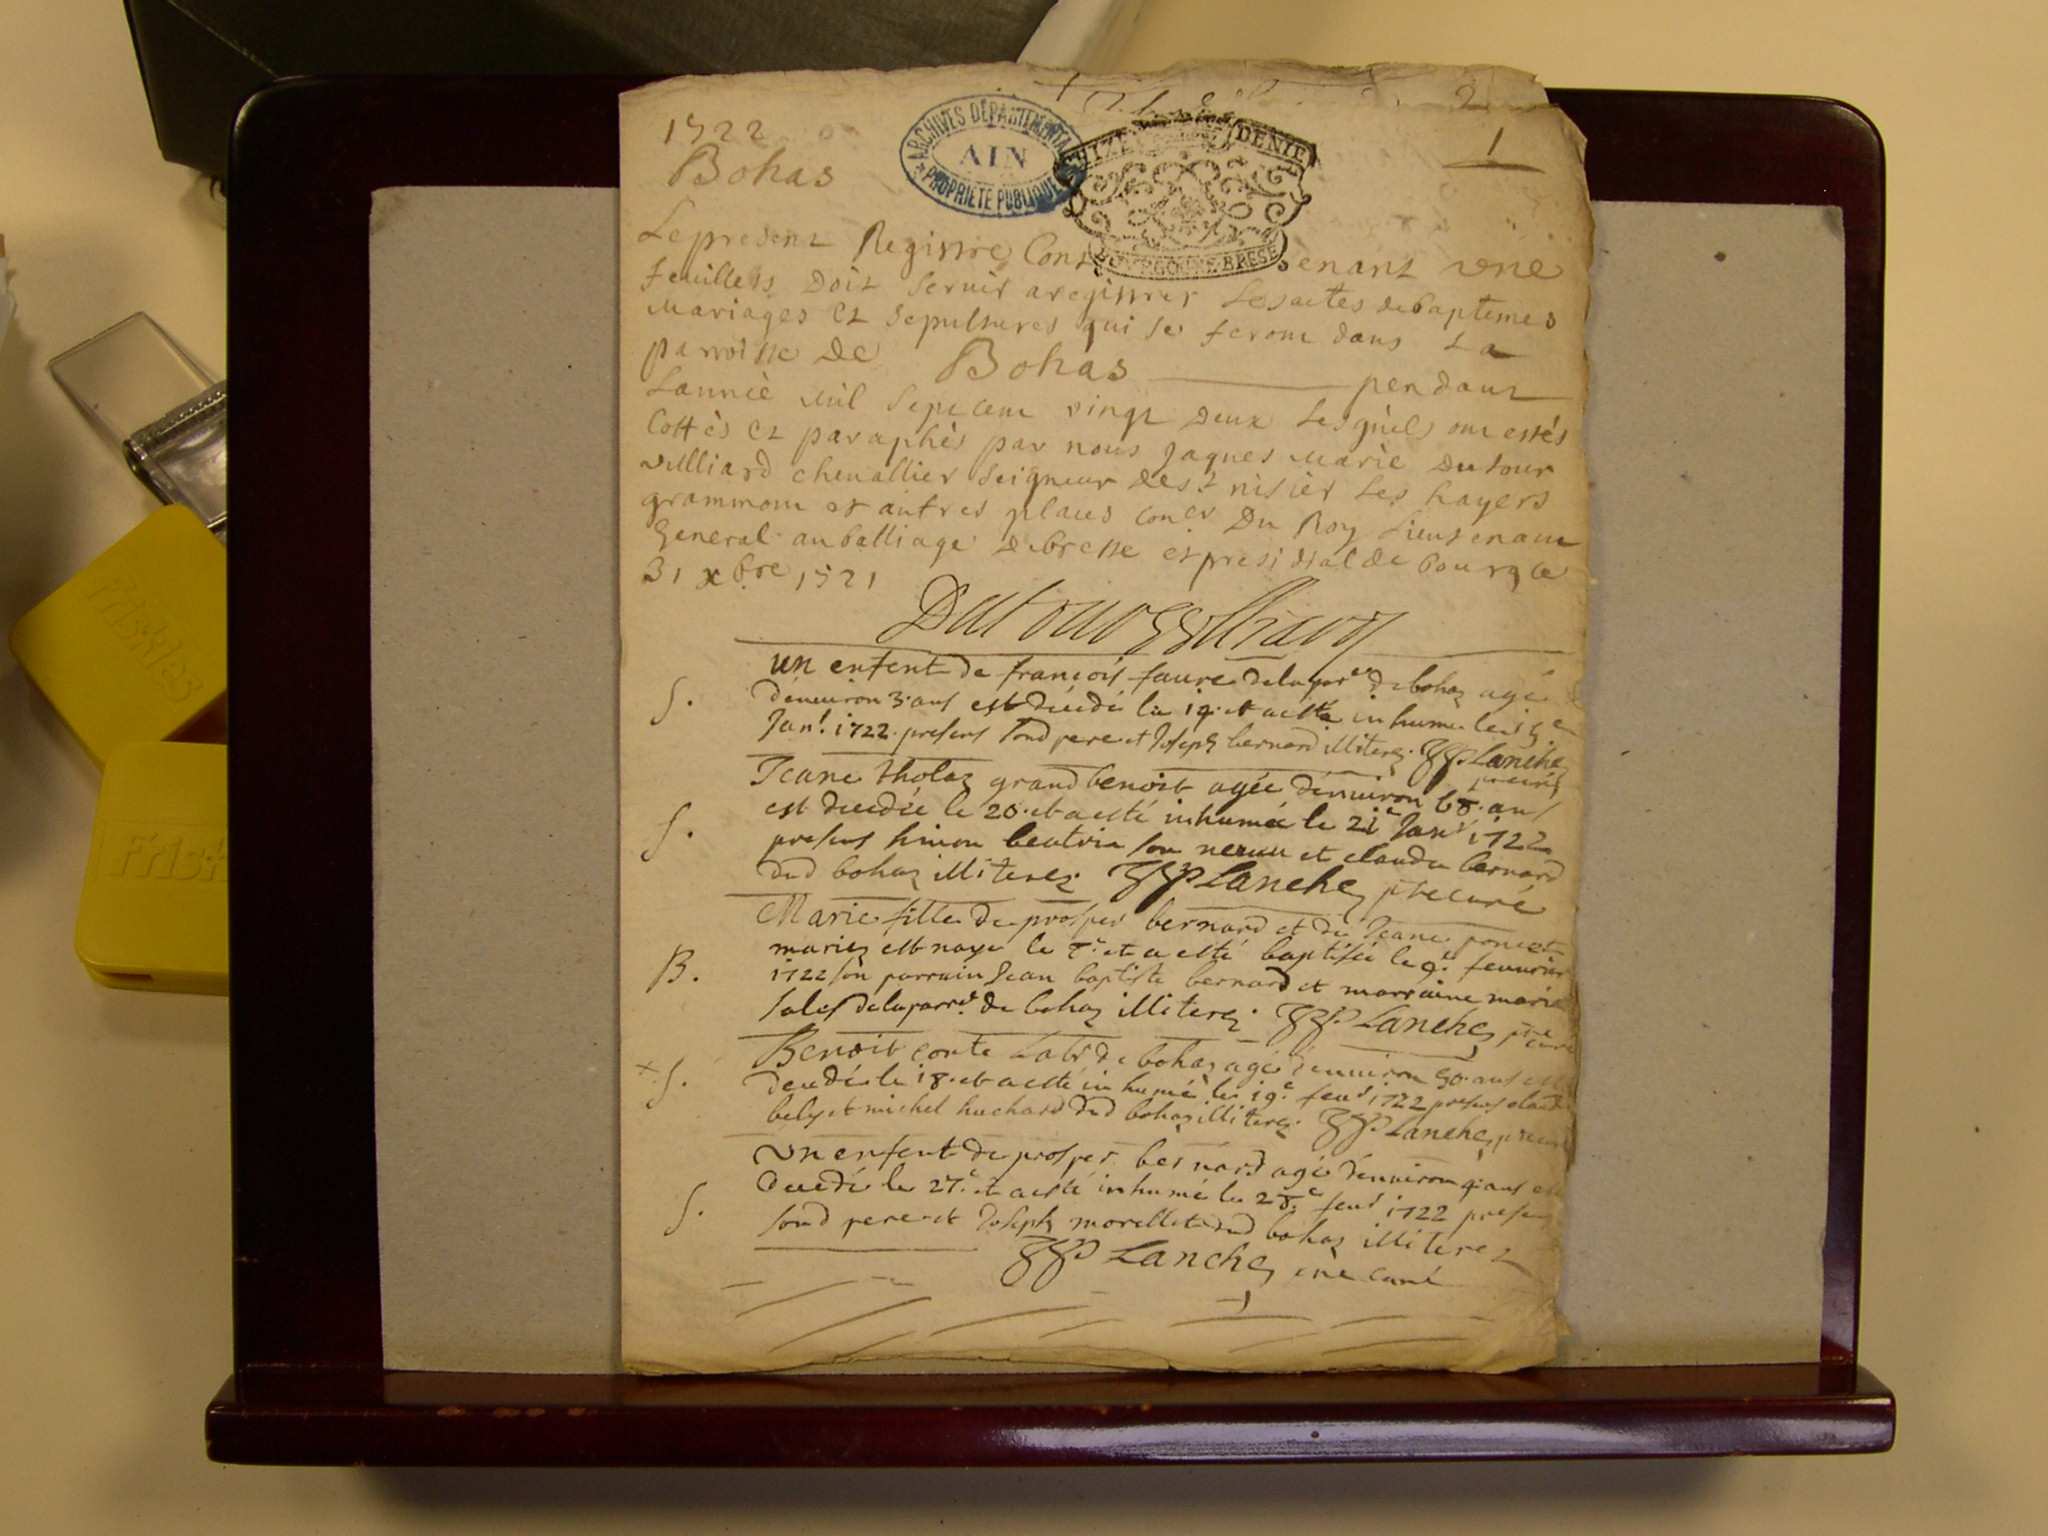 1722
Bohas
ARCHIVES DÉPARTEMENTALES
AIN
PROPRIÉTÉ PUBLIQUE
DENIE
BOURGOGNE BRESE
1
Le present Registre Contenant une
feuillets Doit servir a registrer Les actes de baptemes
Mariages et sepultures qui se feront dans La
parroisse de Bohas pendant
Lannée Mil sept cent vingt deux Lesquels ont estés
Cottés et paraphés par nous Jaques Marie Dutour
villiard chevallier seigneur de st nisier Les hayers
grammont et autres places con.er Du Roy Lieutenant
General au balliage de bresse et presidial de bourg ce
31 xbre 1721
Dutourvilliard
S.
un enfent de françois faure de la par.e de bohaz agé
d'enuiron 3 ans est décédé le et a esté inhumé le
Janr. 1722 presens sond pere et Joseph bernard illiterez. Lanchez
precuré
S.
Jeane tholaz grand benoit agée d'enuiron ans
est decedée le 20. et a esté inhumée le 21e Janr 1722
presens simon beatrix son neueu et claude bernard
dud bohaz illiterez. Lanchez precuré
B.
Marie fille de prosper bernard et de Jeane
mariez est naye le et a esté baptisée le 9e feurier
1722 son parrain Jean baptiste bernard et marraine marie
de la parre. de bohaz illiterez. Lanchez precuré
x S.
Benoit conte Labr de bohaz agé d'enuiron 50 ans est
decedé le 18. et a esté inhumé le 19e feur 1722 presens claude
bely et michel huchard dud bohaz illiterez. Lanchez precuré
S.
Un enfent de prosper bernard agé d'enuiron 4 ans est
decedé le 27e et a esté inhumé le 28e feur 1722 presens
sond pere et Joseph morellet dud bohaz illiterez
Lanchez precuré
Friskies
Frisk